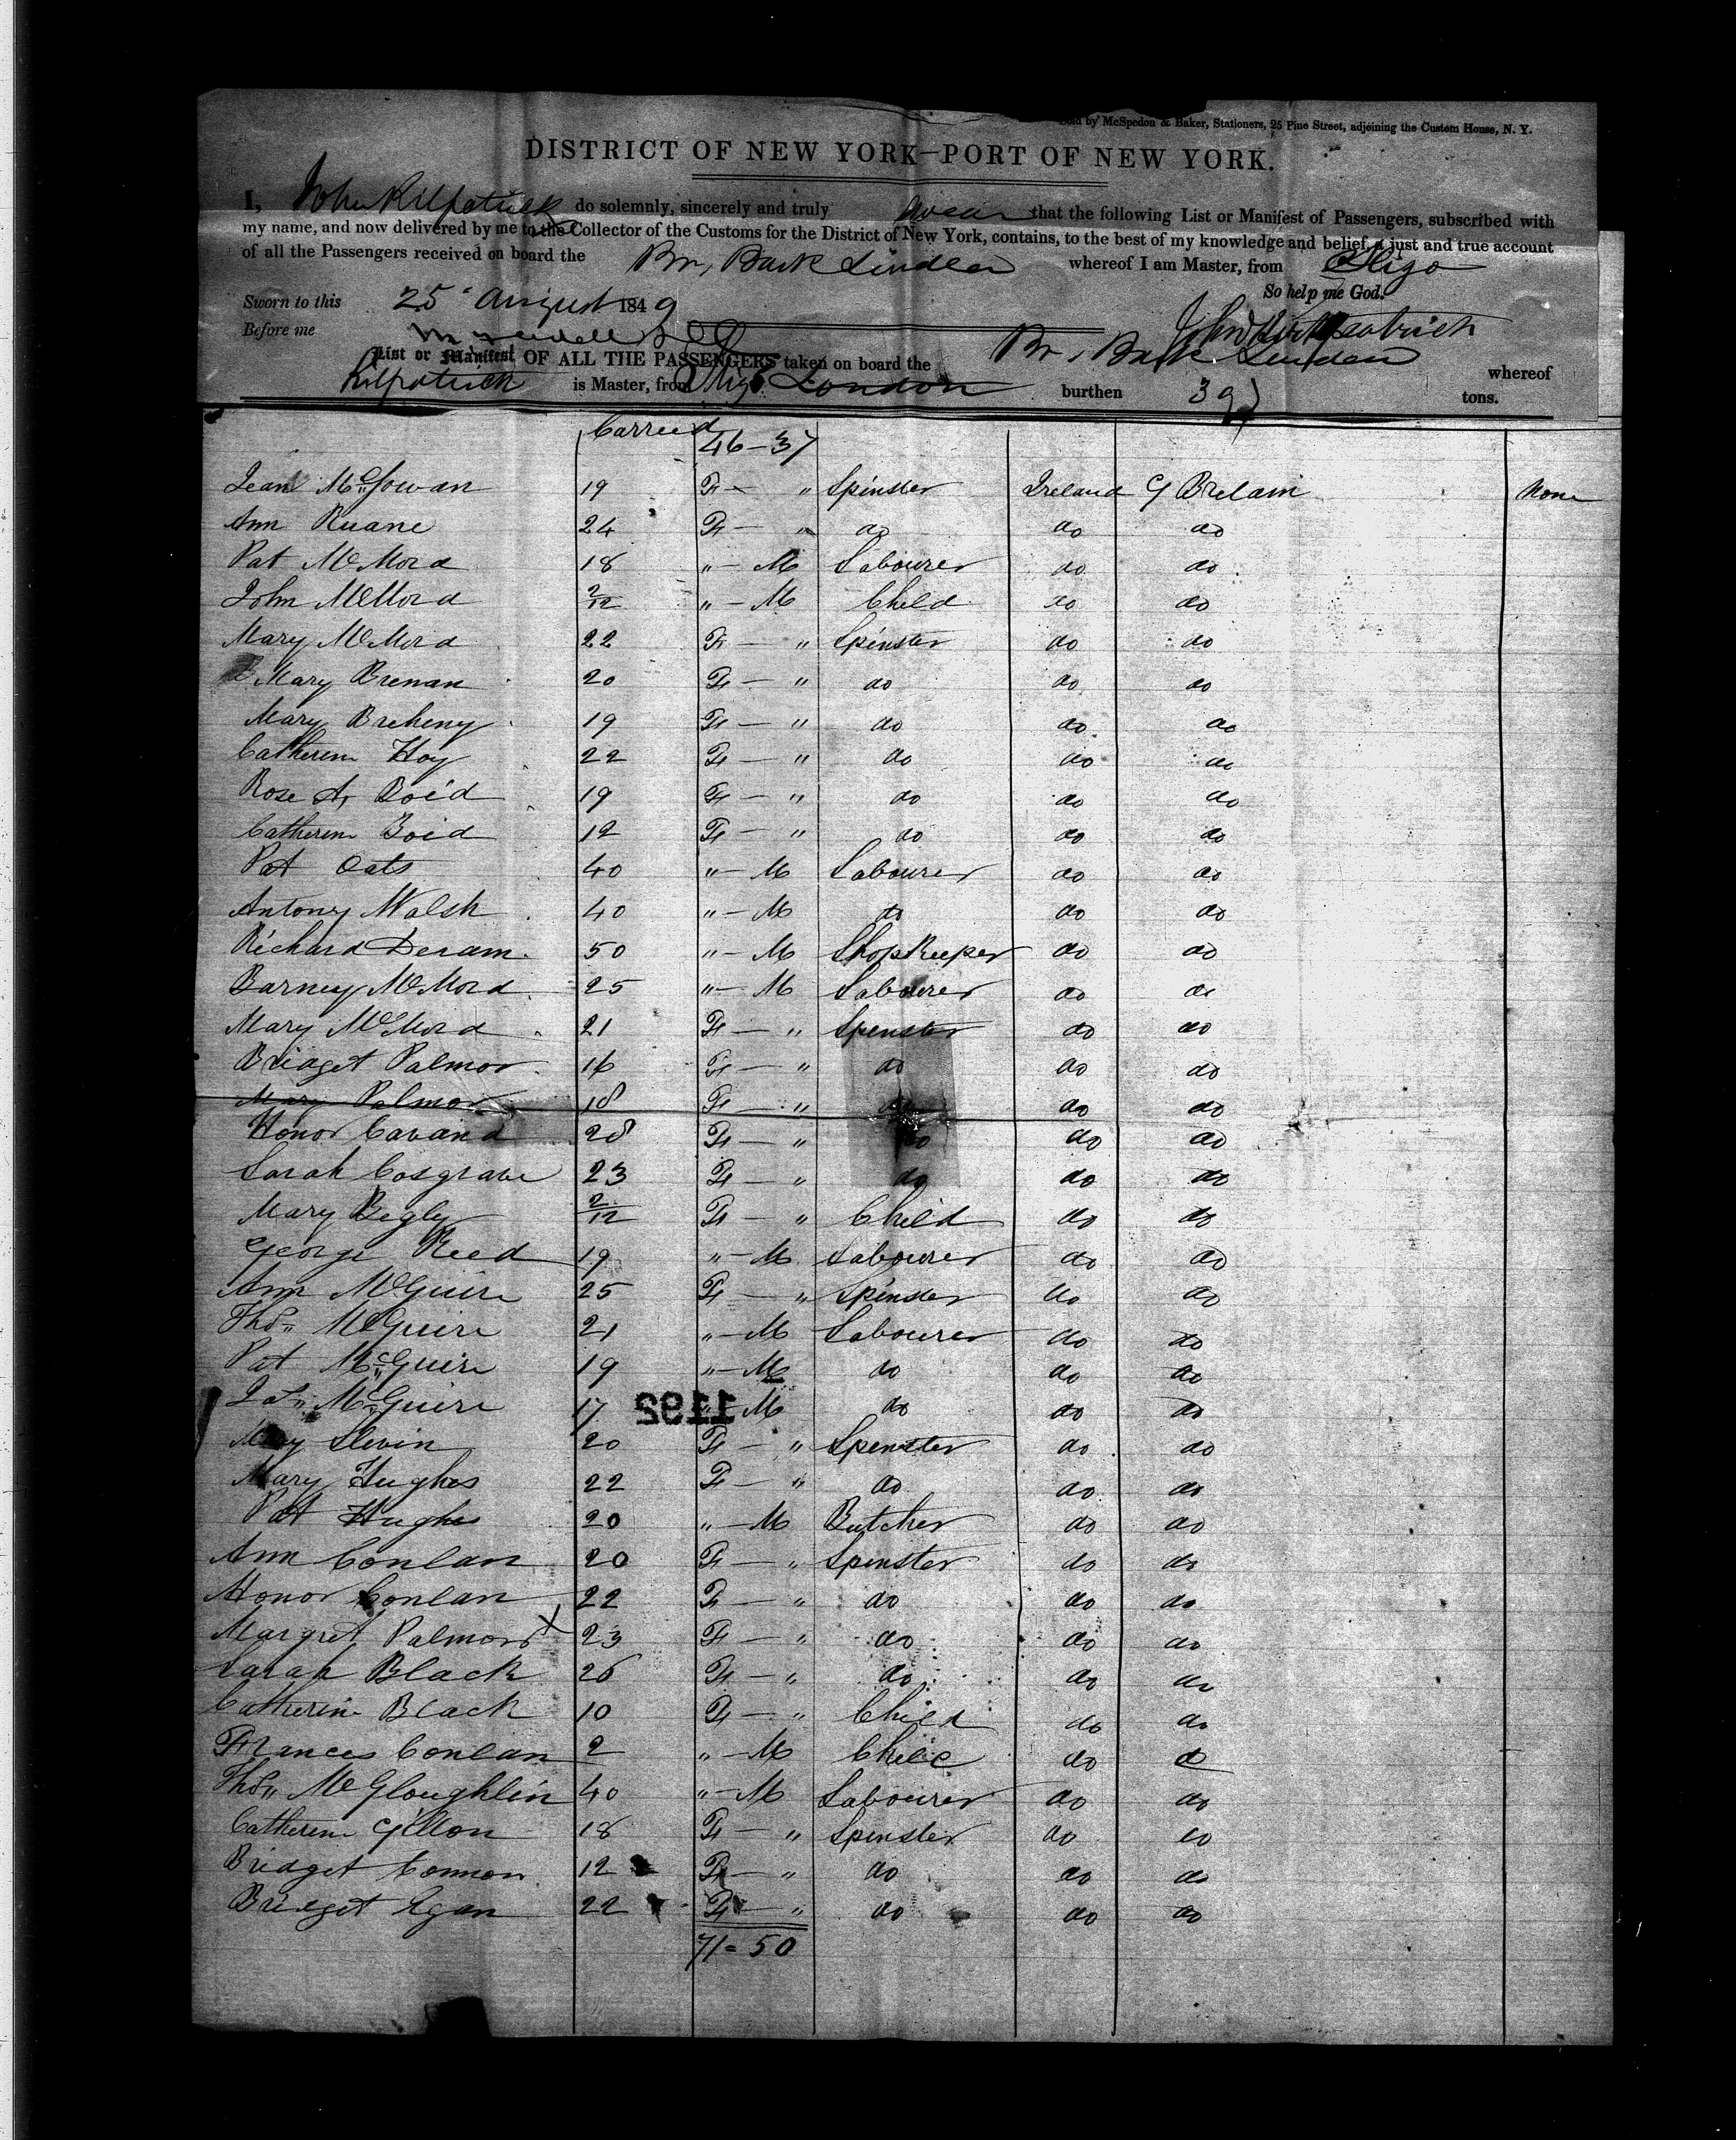 Sold by McSpedon & Baker, Stationers, 25 Pine Street, adjoining the Custom House, N. Y.
DISTRICT OF NEW YORK—PORT OF NEW YORK.
I, John Kilpatrick do solemnly, sincerely and truly swear that the following List or Manifest of Passengers, subscribed with
my name, and now delivered by me to the Collector of the Customs for the District of New York, contains, to the best of my knowledge and belief, a just and true account
of all the Passengers received on board the Br, Bark Linden whereof I am Master, from Sligo
So help me God.
Sworn to this 25" August 1849
Before me
List or Manifest OF ALL THE PASSENGERS taken on board the Br, Bark Linden whereof
Kilpatrick is Master, from Sligo London burthen tons.
Carried 46-37
Jean McGowan 19 F - " Spinster Ireland G Bretain None
Ann Ruane 24 F - " do do do
Pat McMord 18 " - M Labourer do do
John McMord 2/12 " - M Child do do
Mary McMord 22 F - " Spinster do do
Mary Brenan 20 F - " do do do
Mary Breheny 19 F - " do do do
Catheren Hoy 22 F - " do do do
Rose A, Boid 19 F - " do do do
Catheren Boid 12 F - " do do do
Pat Oats 40 " - M Labourer do do
Antony Walsh 40 " - M do do do
Richard Deram 50 " - M ShopKeeper do do
Barney McMord 25 " - M Labourer do do
Mary McMord 21 F - " Spenster do do
Bridget Palmor 16 F - " do do do
Mary Palmor 18 F - " do do do
Honor Cavana 28 F - " do do do
Sarah Cosgrave 23 F - " do do do
Mary Begly 2/12 F - " Child do do
George Reed 19 " - M Labourer do do
Ann McGuire 25 F - " Spinster do do
Thos" McGuire 21 " - M Labourer do do
Pat McGuire 19 " - M do do do
McGuire 17 " - M do do do
1192
Mary Slevin 20 F - " Spenster do do
Mary Hughes 22 F - " do do do
Pat Hughes 20 " - M Butcher do do
Ann Conlan 20 F - " Spenster do do
Honor Conlan 22 F - " do do do
Margret Palmor X 23 F - " do do do
Sarah Black 26 F - " do do do
Catherine Black 10 F - " Child do do
Frances Conlan 2 " - M Child do do
Thos" McGloughlin 40 " - M Labourer do do
Catheren Gillon 18 F - " Spenster do do
Bridget Connon 12 F - " do do do
Bridget Egan 22 F - " do do do
71 = 50